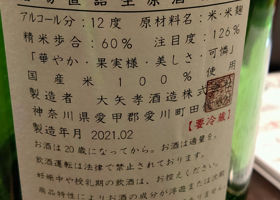 直詰生原酒
アルコール分：12度　原材料名：米・米麹
精米歩合：60%　注目度：126%
「華やか・果実様・美しさ・可憐」
国産米100%使用
製造者　大矢孝酒造株式会
神奈川県愛甲郡愛川町田
製造年月　2021.02　【要冷蔵】
お酒は20歳になってから。お酒は適量を。
飲酒運転は法律で禁止されております。
妊娠中や授乳期の飲酒は、お控えくださ
商品特性によりお酒の成分が浮遊または沈殿